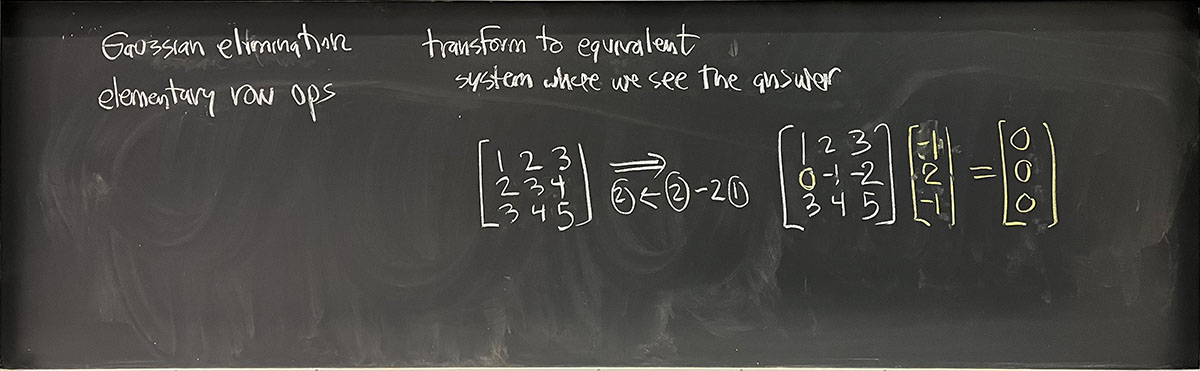 Gaussian elimination
elementary row ops
transform to equivalent
system where we see the answer
[1 2 3] [1 2 3] [-1] [0]
[2 3 4] ⇒ ②←②-2① [0 -1 -2] [2] = [0]
[3 4 5] [3 4 5] [-1] [0]